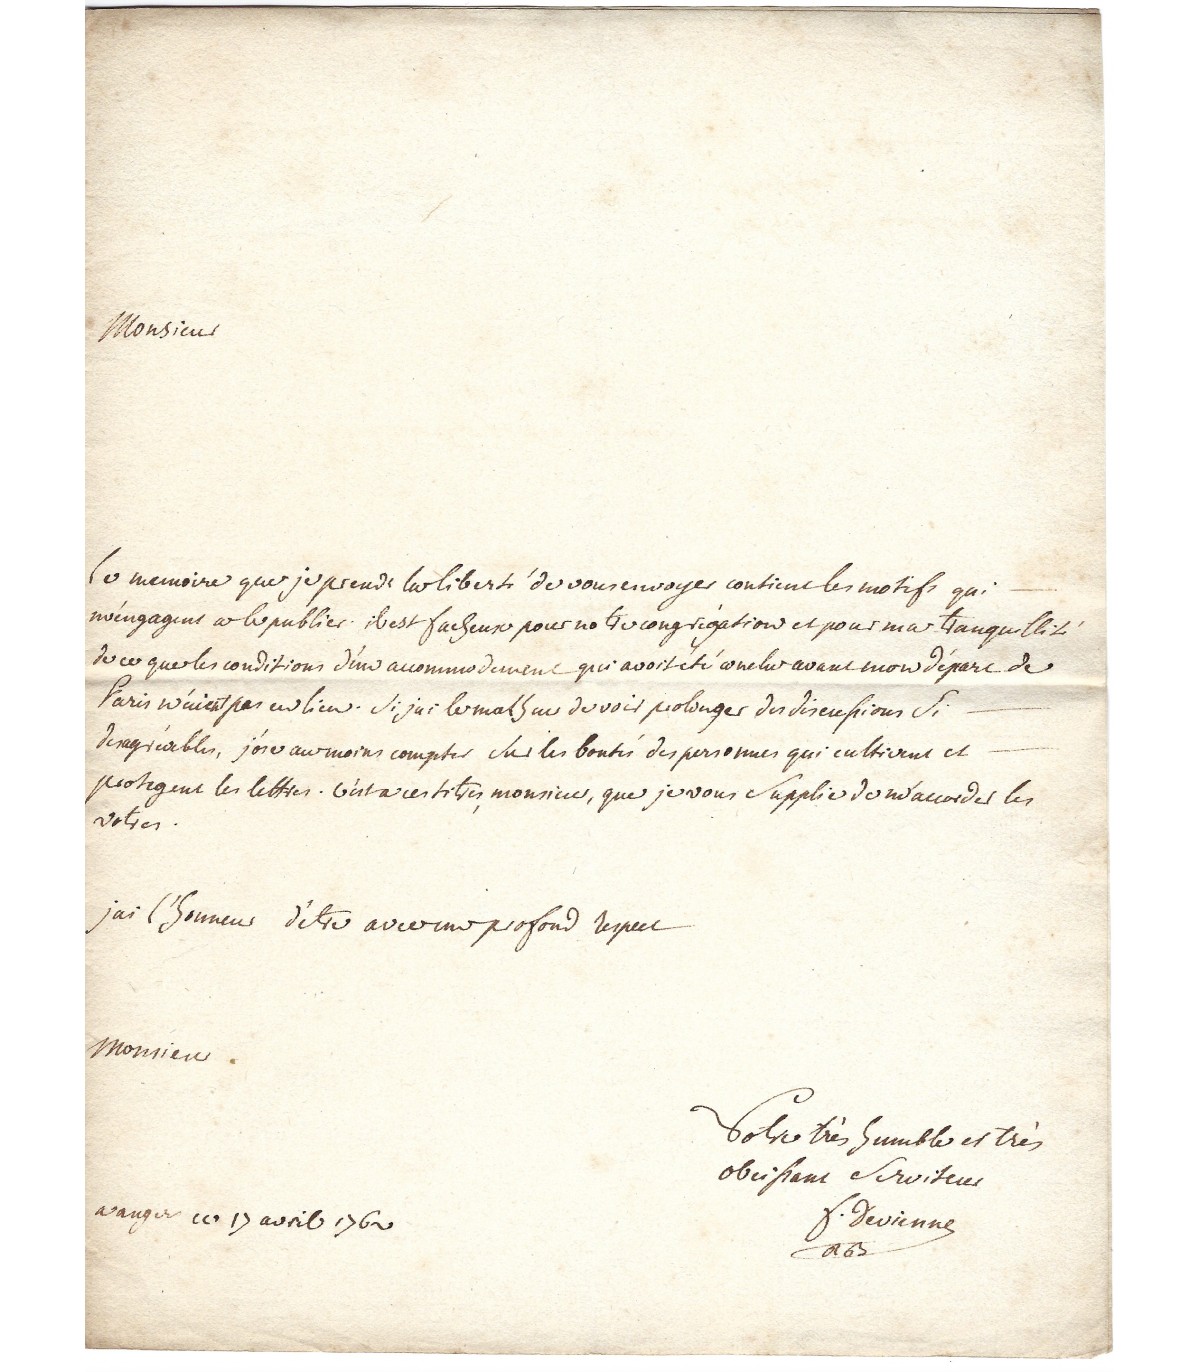 Monsieur
Le memoire que je prends la liberté de vous envoyer contient les motifs qui
m'engagent a le publier. il est facheux pour notre congrégation et pour ma tranquillité
de ce que les conditions d'un accommodement qui avoit été conclu avant mon départ de
Paris n'aient pas eu lieu. Si j'ai le malheur de voir prolonger des discussions Si
desagréables, j'ose au moins compter Sur les bontés des personnes qui cultivent et
protegent les lettres. C'est a ces titres, monsieur, que je vous Supplie de m'accorder les
votres.
jai l'honneur d'être avec un profond respect
Monsieur.
Votre très humble et très
obeissant Serviteur
f. devienne
a anger ce 17 avril 1762